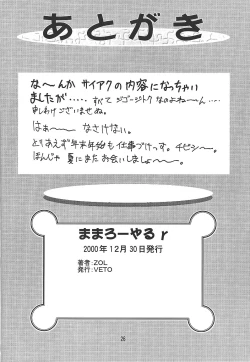 あとがき
な〜んか サイアクの内容になっちゃい
ましたが‥‥‥すべて ジゴージトク なのよね〜ん‥‥
申しわけございませぬ。
はぁ〜〜 なさけない。
とりあえず年末年始も仕事づけっす。チビシ〜。
ほんじゃ 夏にまたお会いしましょ〜〜。
ままろーやるr
2000年12月30日発行
著者:ZOL
発行:VETO
26